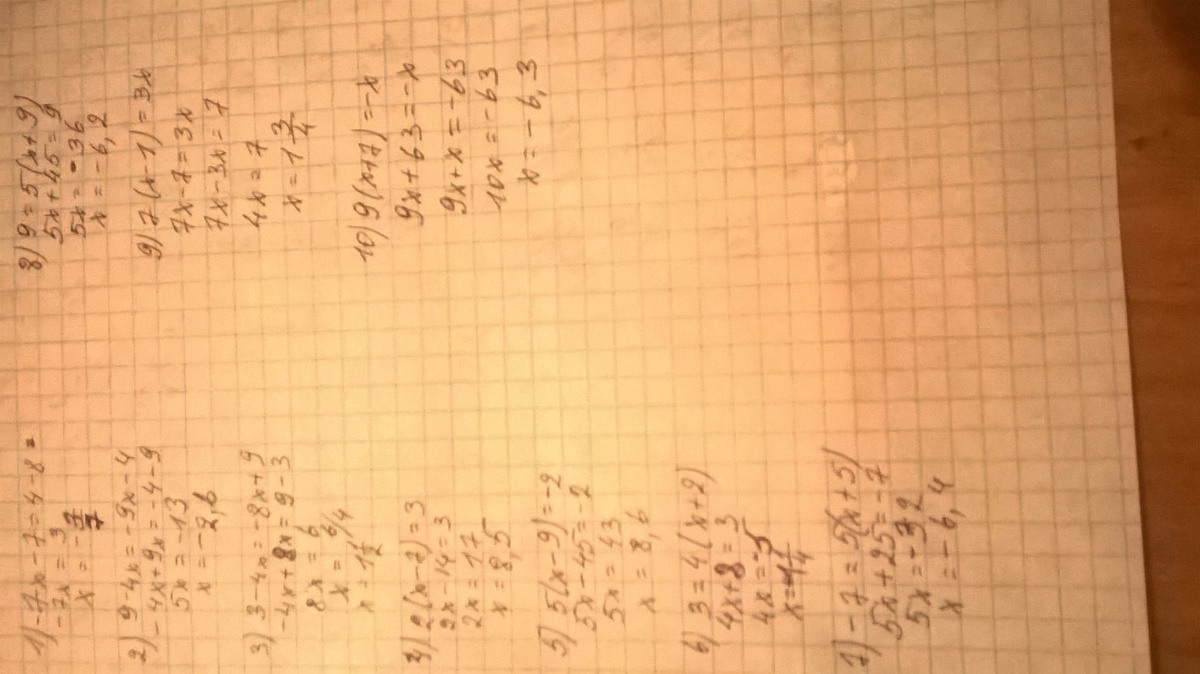 1) -7x - 7 = 4 - 8
-7x = 3
x = -
2) 9 - 4x = -9x - 4
-4x + 9x = -4 - 9
5x = -13
x = -2,6
3) 3 - 4x = -8x + 9
-4x + 8x = 9 - 3
8x = 6
x = 6/4
x = 1 1/2
4) 2(x-7) = 3
2x - 14 = 3
2x = 17
x = 8,5
5) 5(x-9) = -2
5x - 45 = -2
5x = 43
x = 8,6
6) 3 = 4(x+2)
4x + 8 = 3
4x = -5
x = -1 1/4
7) -7 = 5(x+5)
5x + 25 = -7
5x = -32
x = -6,4
8) 9 = 5(x+9)
5x + 45 = 9
5x = -36
x = -6,2
9) 7(x-1) = 3x
7x - 7 = 3x
7x - 3x = 7
4x = 7
x = 1 3/4
10) 9(x+7) = -x
9x + 63 = -x
9x + x = -63
10x = -63
x = -6,3